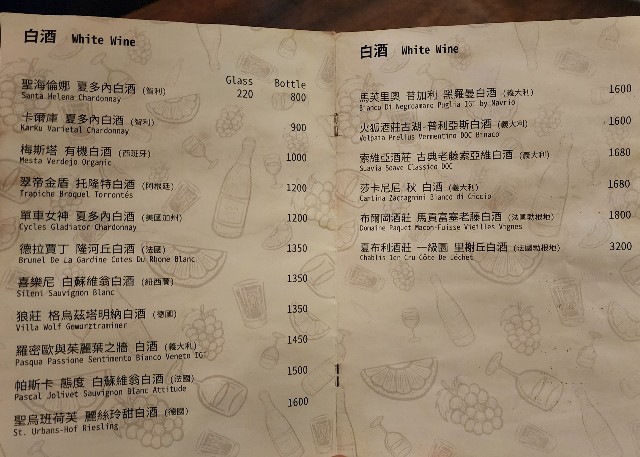 白酒 White Wine
Glass Bottle
聖海倫娜 夏多內白酒 (智利) 220 800
Santa Helena Chardonnay
卡爾庫 夏多內白酒 (智利) 900
Karku Varietal Chardonnay
梅斯塔 有機白酒 (西班牙) 1000
Mesta Verdejo Organic
翠帝金盾 托隆特白酒 (阿根廷) 1200
Trapiche Broquel Torrontés
單車女神 夏多內白酒 (美國加州) 1200
Cycles Gladiator Chardonnay
德拉賈丁 隆河丘白酒 (法國) 1350
Brunel De La Gardine Cotes Du Rhone Blanc
喜樂尼 白蘇維翁白酒 (紐西蘭) 1350
Sileni Sauvignon Blanc
狼莊 格烏茲塔明納白酒 (德國) 1350
Villa Wolf Gewurztraminer
羅密歐與茱麗葉之牆 白酒 (義大利) 1450
Pasqua Passione Sentimento Bianco Veneto IGT
帕斯卡 態度 白蘇維翁白酒 (法國) 1500
Pascal Jolivet Sauvignon Blanc Attitude
聖烏班荷芙 麗絲玲甜白酒 (德國) 1600
St. Urbans-Hof Riesling
白酒 White Wine
馬芙里奧 普加利 黑羅曼白酒 (義大利) 1600
Bianco Di Negroamaro Puglia IGT by Mavrio
火狐酒莊古湖-普利亞斯白酒 (義大利) 1600
Volpaia Prelius Vermentino DOC Binaco
索維亞酒莊 古典老藤索亞維白酒 (義大利) 1680
Suavia Soave Classico DOC
莎卡尼尼 秋 白酒 (義大利) 1680
Cantina Zaccagnini Bianco di Ciccio
布爾岡酒莊 馬貢富塞老藤白酒 (法國勃根地) 1800
Domaine Paquet Macon-Fuisse Vieilles Vignes
夏布利酒莊 一級園 里榭丘白酒 (法國勃根地) 3200
Chablis 1er Cru Côte De Léchet